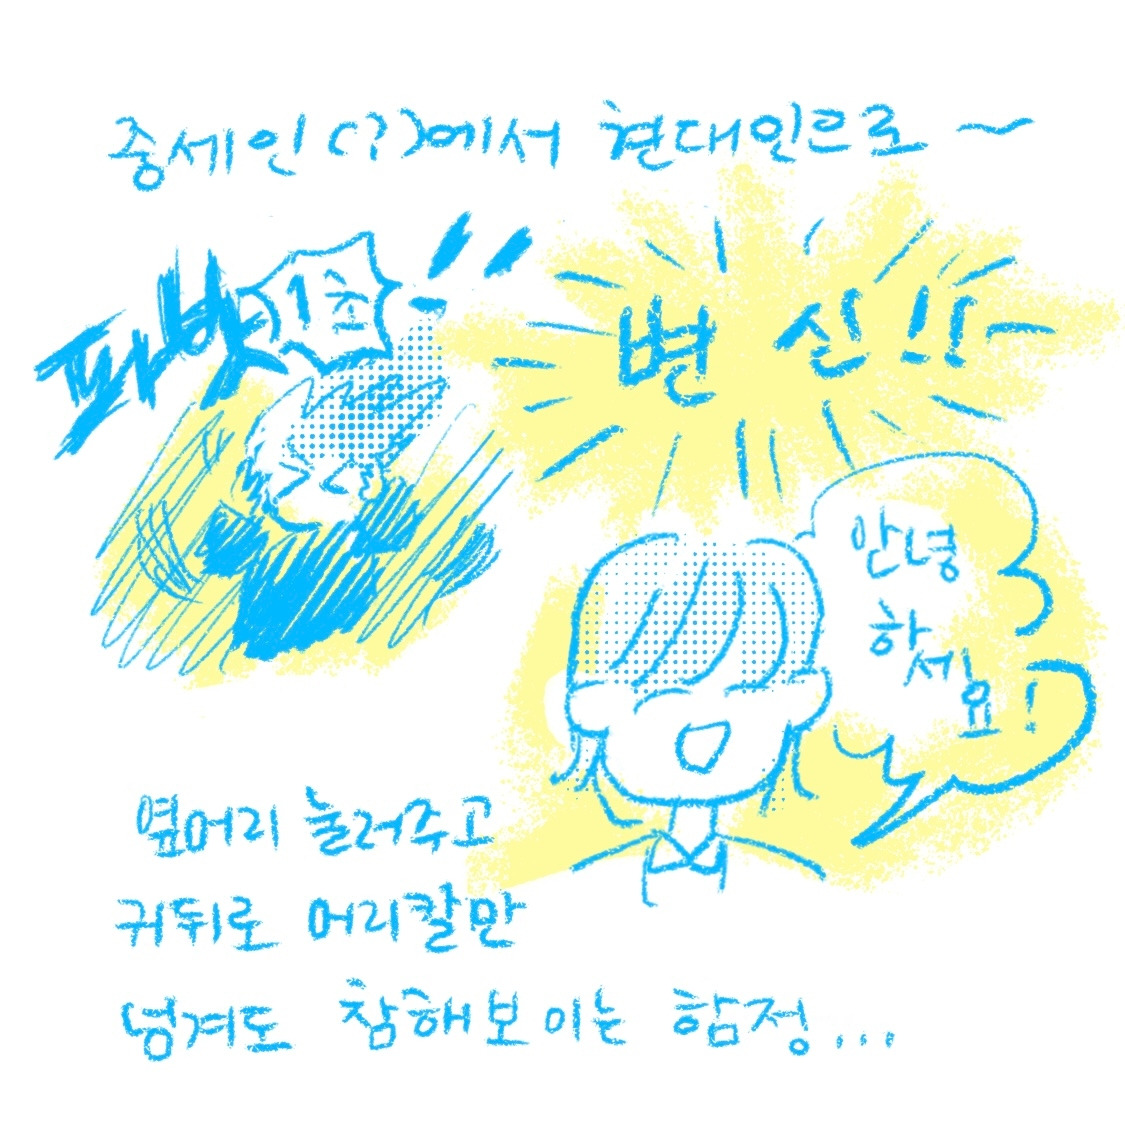 중세인(?)에서 현대인으로~
파밧
1초
변신!!
안녕
하세요!
옆머리 눌러주고
귀뒤로 머리칼만
넘겨도 참해보이는 함정...